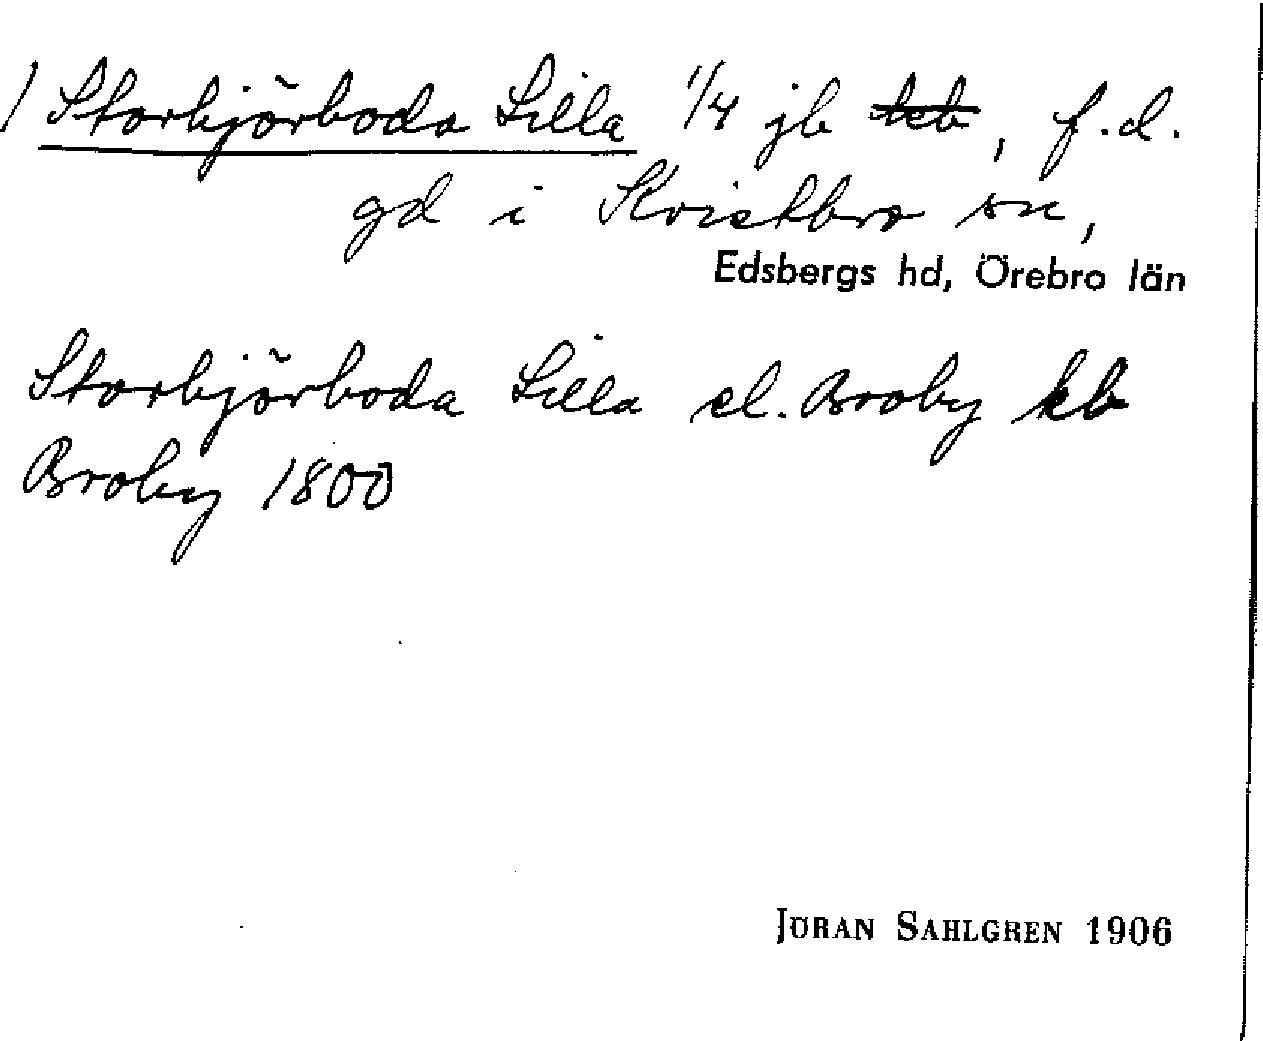 / Storbjörboda Lilla 1/4 jb, f.d.
gd i Kvistbro sn,
Edsbergs hd, Örebro län
Storbjörboda Lilla el. Broby kb
Broby 1800
JÖRAN SAHLGREN 1906